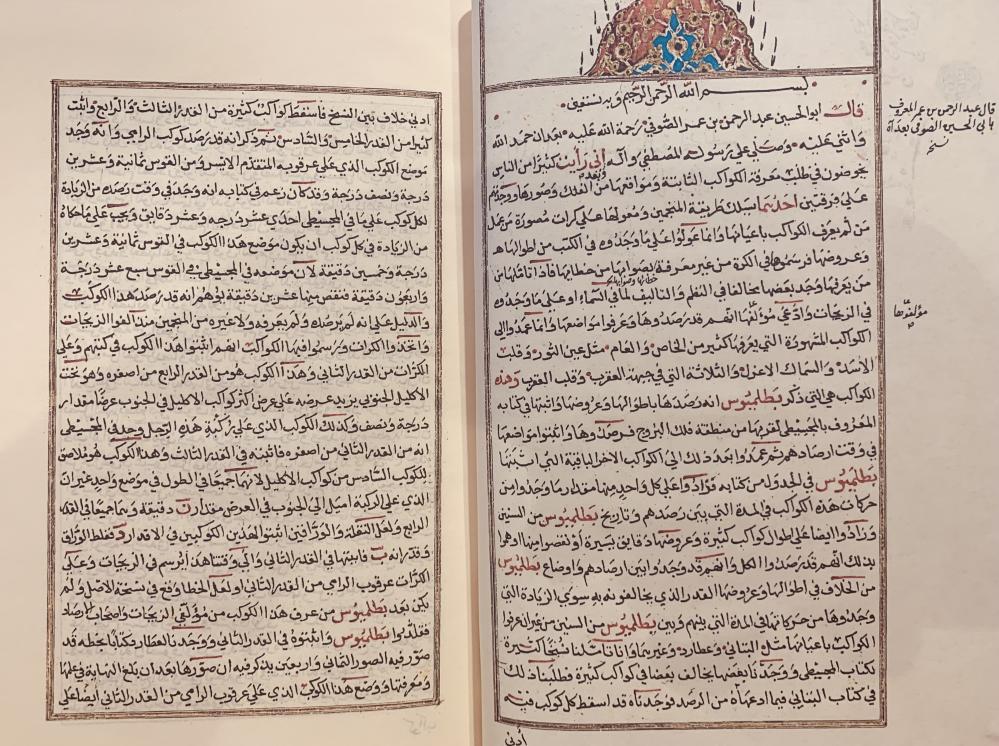 بسم الله الرحمن الرحيم وبه نستعين
قال ابو الحسين عبد الرحمن بن عمر الصوفي رحمة الله عليه بعد ان حمد الله
واثنى عليه وصلى على رسوله المصطفى وآله اني رأيت كثيرا من الناس
يخوضون في طلب معرفة الكواكب الثابتة ومواقعها من الفلك وصورها ووجدتهم
على فرقتين احدىهما تسلك طريقة المنجمين ومعولها على كرات مصورة من عمل
من لم يعرف الكواكب باعيانها وانما عولوا على ما وجدوه في الكتب من اطوالها
وعروضها فرسموها في الكرة من غير معرفة بصوابها من خطايها فاذا تاملها من
من يعرفها وجد بعضها مخالفا في النظم والتاليف لما في السماء او على ما وجدوه
في الزيجات وادعى مؤلفوها انهم قد رصدوها وعرفوا مواضعها وانما عمدوا الى
الكواكب المشهورة التي يعرفها كثير من الخاص والعام مثل عين الثور وقلب
الاسد والسماك الاعزل والثلاثة التي في جبهة العقرب وقلب العقرب وهذه
الكواكب هي التي ذكر بطلميوس انه رصدها باطوالها وعروضها واثبتها في كتابه
المعروف بالمجسطي لقربها من منطقة فلك البروج فرصدوها واثبتوا مواضعها
في وقت ارصادهم ثم عمدوا بعد ذلك الى الكواكب الاخر الباقية التي اثبتها
بطلميوس في الجدول من كتابه فزادوا على كل واحد منها مقدار ما وجدوا من
حركات هذه الكواكب في المدة التي بين رصدهم وتاريخ بطلميوس من السنين
وزادوا ايضا على اطوال كواكب كثيرة وعروضها دقايق يسيرة او نقصوا منها اوهموا
بذلك انهم قد رصدوا الكل وانهم قد وجدوا بين ارصادهم واوضاع بطلميوس
من الخلاف في اطوالها وعروضها القدر الذي يخالفونه به سوى الزيادة التي
وجدوها من حركاتها في المدة التي بينهم وبين بطلميوس من السنين من غير ان عرفوا
الكواكب باعيانها مثل البتاني وعطارد وغيرهما وانا تاملنا نسخا كثيرة
لكتاب المجسطي ووجدنا بعضها يخالف بعضا في كواكب كثيرة وطلبنا ذلك
في كتاب البتاني فيما ادعاه من الرصد فوجدناه قد اسقط كل كوكب فيه
أدنى
قال عبد الرحمن بن عمر المعروف
بابي الحسين الصوفي بعد ان
نسخ
مؤلفوها
ادنى خلاف بين النسخ فاسقط كواكب كثيرة من القدر الثالث والرابع واثبت
كثيرا من القدر الخامس والسادس ثم ذكر انه قد رصد كوكب الرامي وانه وجد
موضع الكوكب الذي على عرقوبه المتقدم الايسر من القوس ثمانية وعشرين
درجة ونصف درجة وقد كان زعم في كتابه انه وجد في وقت رصده من الزيادة
لكل كوكب على ما في المجسطي احدى عشر درجه وعشر دقايق ويجب على ما حكاه
من الزيادة في كل كوكب ان يكون موضع هذا الكوكب في القوس ثمانية وعشرين
درجة وخمسين دقيقة لان موضعه في المجسطي في القوس سبع عشر درجة
واربعون دقيقة فنقص منها عشرين دقيقة يوهم انه قد رصد هذا الكوكب
والدليل على انه لم يرصده ولم يعرفه ولا غيره من المنجمين منذ الفوا الزيجات
واتخذوا الكرات ورسموا فيها الكواكب انهم اثبتوا هذا الكوكب في كتبهم وعلى
الكرات من القدر الثاني وهذا الكوكب هو من القدر الرابع من اصغره وهو تحت
الاكليل الجنوبي يزيد عرضه على عرض اكثر كواكب الاكليل في الجنوب عرضا مقدار
درجة ونصف وكذلك الكوكب الذي على ركبة هذه الرجل وجد في المجسطي
انه من القدر الثاني من اصغره فاثبته في القدر الثالث وهذا الكوكب هو ملاصق
للكوكب السادس من كواكب الاكليل لانهما جميعا في الطول في موضع واحد غير ان
الذي على الركبة اميل الى الجنوب في العرض مقدار دقيقة وهما جميعا في القدر
الرابع ولعل النقلة والوراقين اثبتوا لهذين الكوكبين في الاقدار د فغلط الوراق
وقدر انه ب فاثبتها في القدر الثاني والى وقتنا هذا يرسم في الزيجات وعلى
الكرات عرقوب الرامي من القدر الثاني او لعل الخطا وقع في نسخة الاصل ولم
يكن بعد بطلميوس من عرف هذا الكوكب من مؤلفي الزيجات واصحاب الارصاد
فقلدوا بطلميوس واثبتوه في القدر الثاني ووجدنا لعطارد كتابا بخطه قد
صور فيه الصور الثماني واربعين يذكر فيه ان صورها بعد ان بلغ النهاية في علمها
ومعرفتها ووضع هذا الكوكب الذي على عرقوب الرامي من القدر الثاني ايضا على